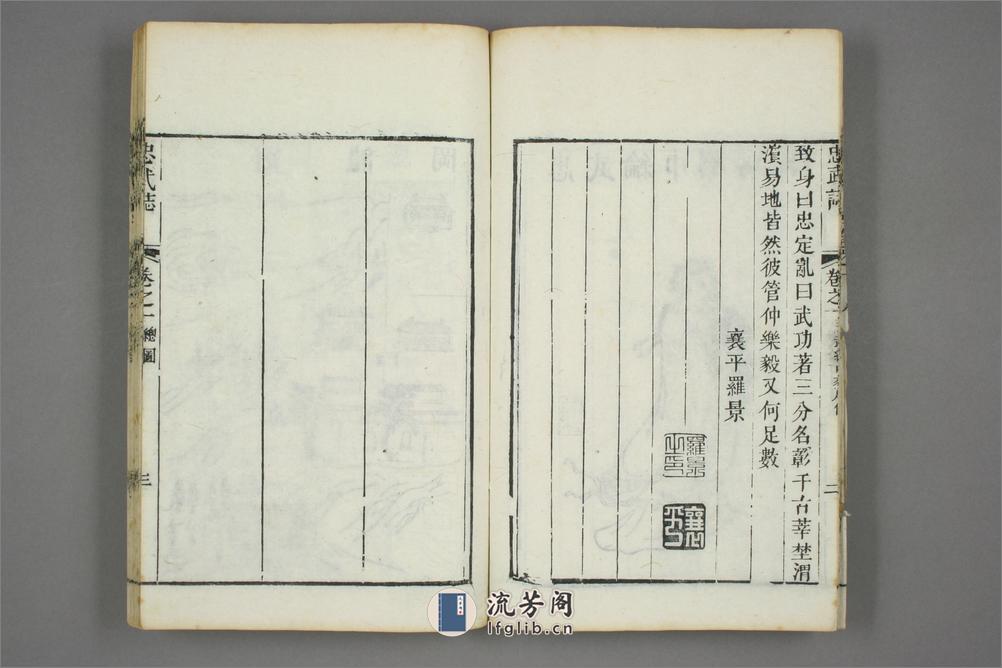 忠武誌
卷之一
二
致身曰忠定亂曰武功著三分名彰千古莘埜渭
濱易地皆然彼管仲樂毅又何足數
襄平羅景
羅景之印
忠武誌
卷之一 總圖
三
流芳阁
lfglib.cn